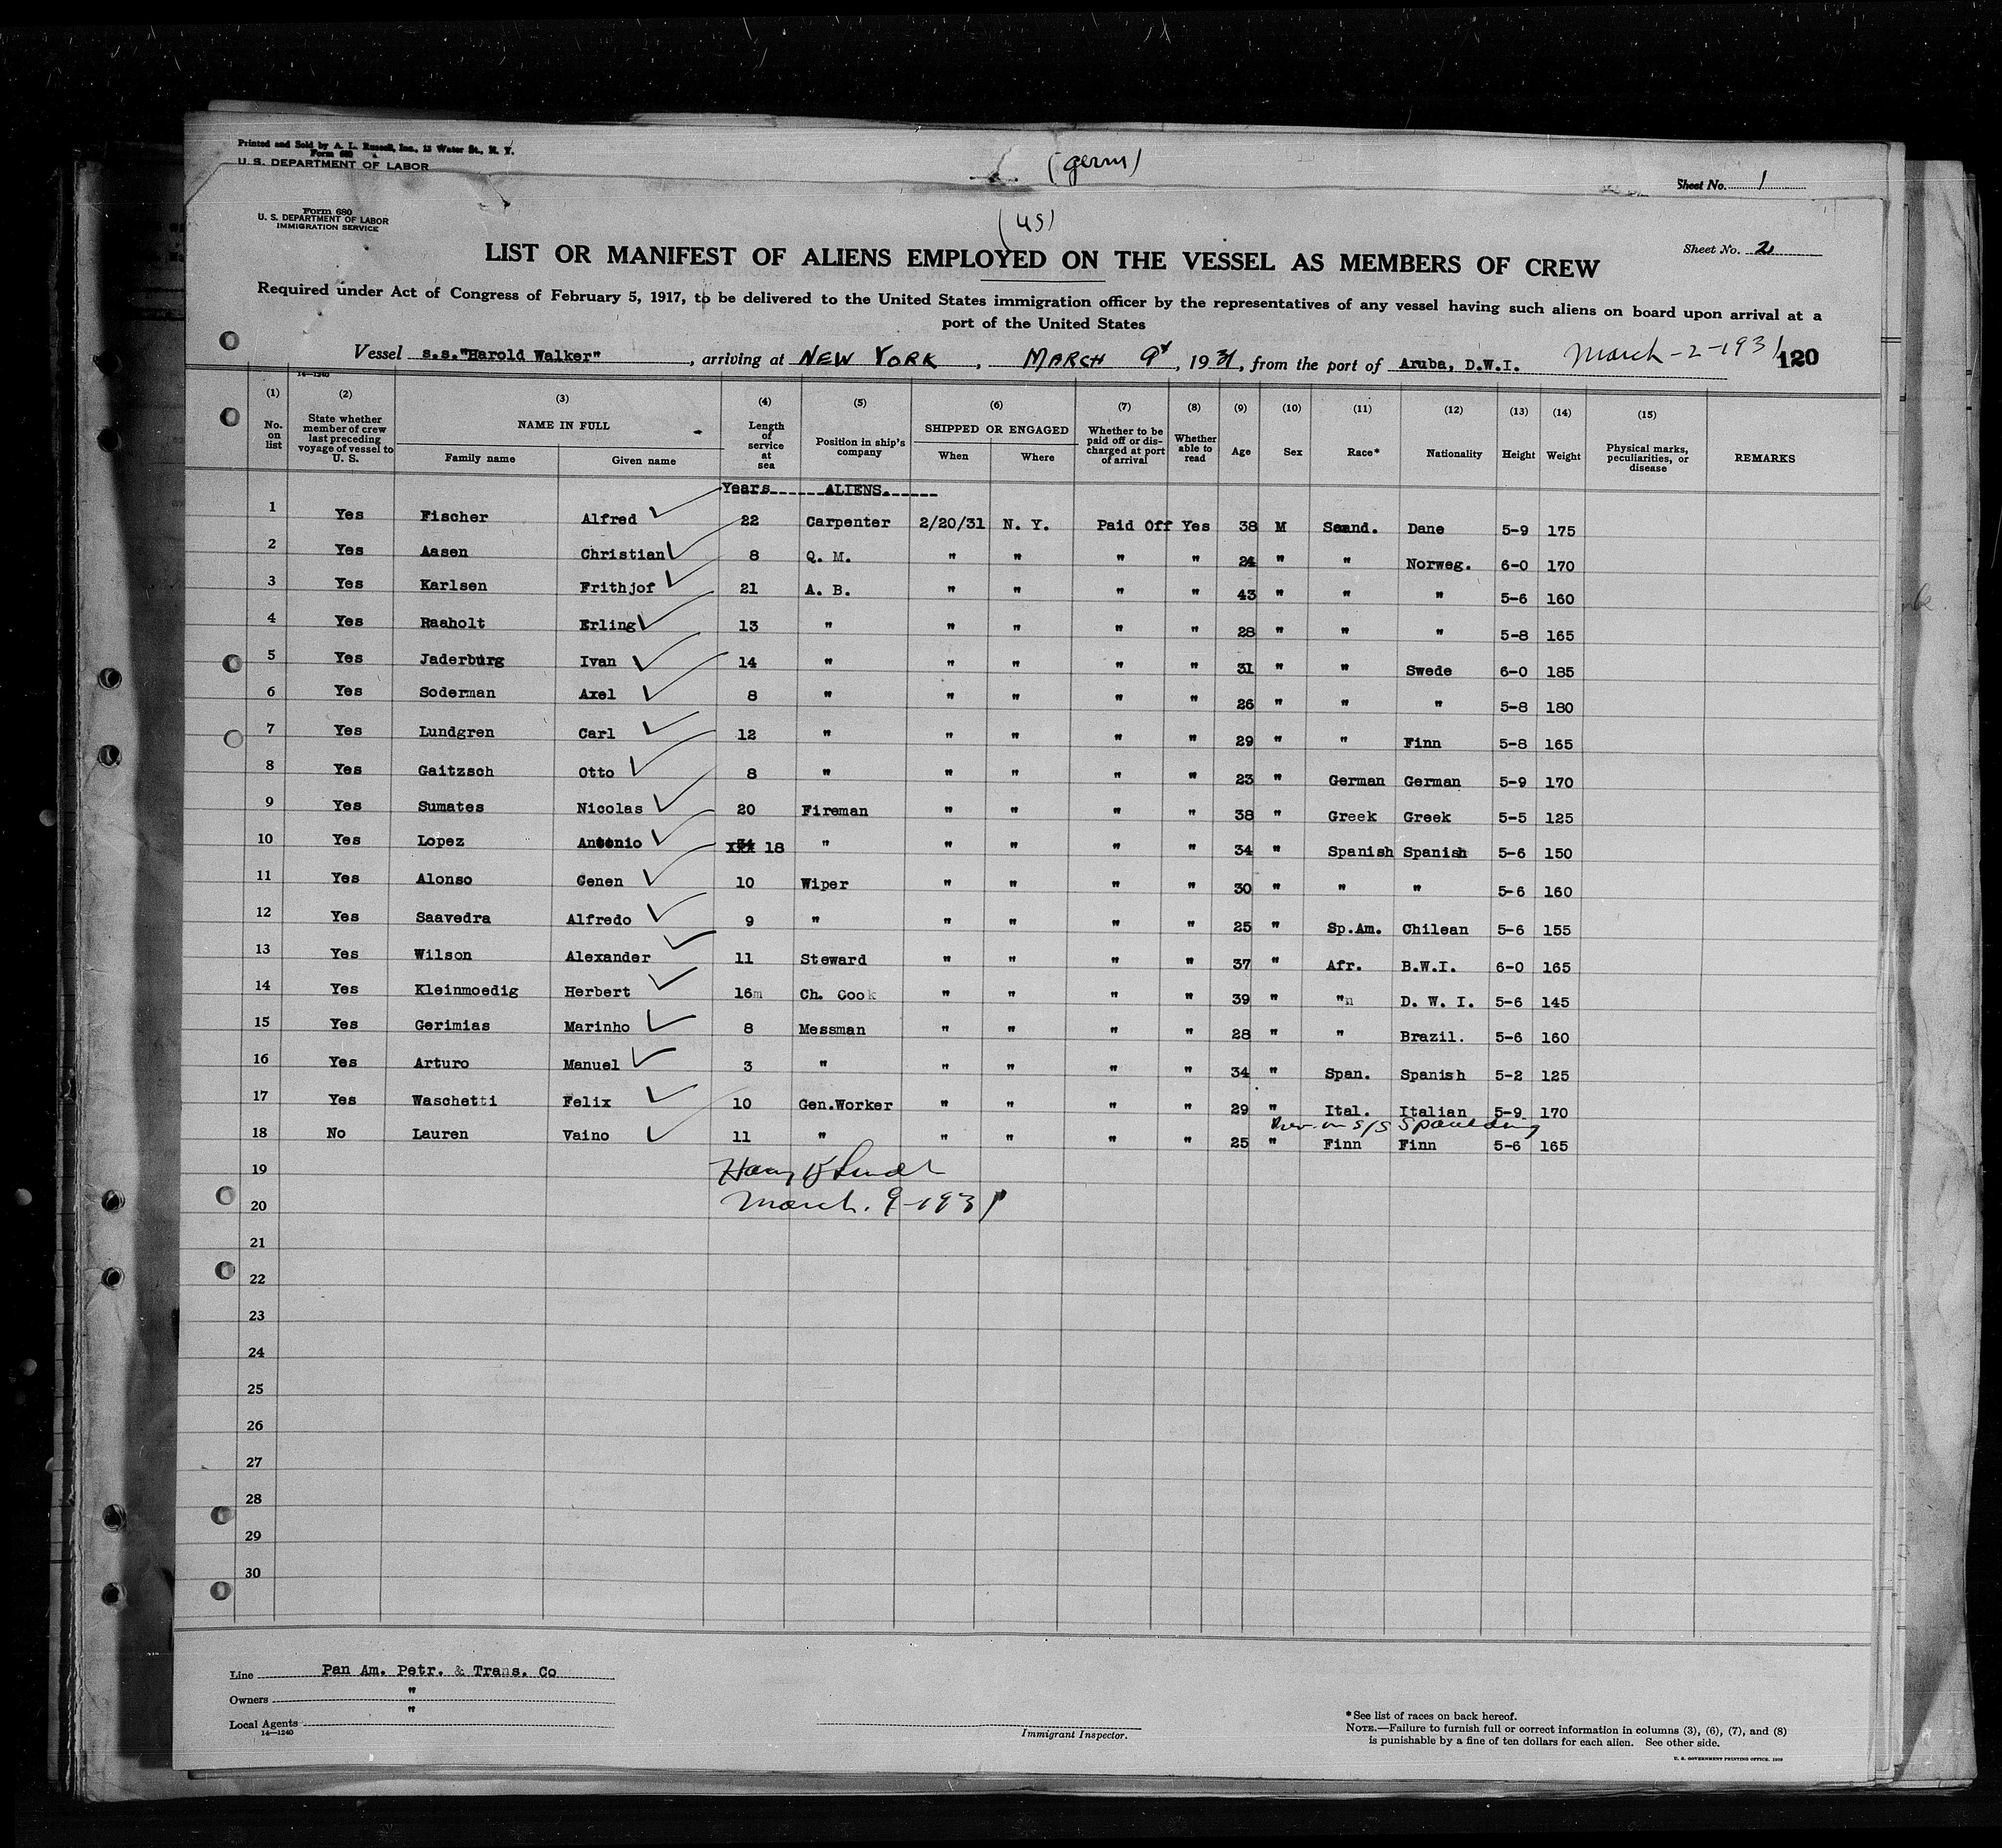 Printed and Sold by A. L. Russell, Inc., 13 Water St., N. Y.
Form 680
U. S. DEPARTMENT OF LABOR
(germ)
Sheet No. 1
Form 680
U. S. DEPARTMENT OF LABOR
IMMIGRATION SERVICE
(us)
Sheet No. 2
LIST OR MANIFEST OF ALIENS EMPLOYED ON THE VESSEL AS MEMBERS OF CREW
Required under Act of Congress of February 5, 1917, to be delivered to the United States immigration officer by the representatives of any vessel having such aliens on board upon arrival at a
port of the United States
Vessel s.s."Harold Walker", arriving at NEW YORK, MARCH 9, 1931, from the port of Aruba, D.W.I. March-2-1931 120
14—1240
(1) No. on list (2) State whether member of crew last preceding voyage of vessel to U. S. (3) NAME IN FULL Family name Given name (4) Length of service at sea (5) Position in ship's company (6) SHIPPED OR ENGAGED When Where (7) Whether to be paid off or discharged at port of arrival (8) Whether able to read (9) Age (10) Sex (11) Race* (12) Nationality (13) Height (14) Weight (15) Physical marks, peculiarities, or disease REMARKS
Years ALIENS.
1 Yes Fischer Alfred 22 Carpenter 2/20/31 N. Y. Paid Off Yes 38 M Scand. Dane 5-9 175
2 Yes Aasen Christian 8 Q. M. " " " " 24 " " Norweg. 6-0 170
3 Yes Karlsen Frithjof 21 A. B. " " " " 43 " " " 5-6 160
4 Yes Raaholt Erling 13 " " " " " 28 " " " 5-8 165
5 Yes Jaderburg Ivan 14 " " " " " 31 " " Swede 6-0 185
6 Yes Soderman Axel 8 " " " " " 26 " " " 5-8 180
7 Yes Lundgren Carl 12 " " " " " 29 " " Finn 5-8 165
8 Yes Gaitzsch Otto 8 " " " " " 23 " German German 5-9 170
9 Yes Sumates Nicolas 20 Fireman " " " " 38 " Greek Greek 5-5 125
10 Yes Lopez Antonio 18 " " " " " 34 " Spanish Spanish 5-6 150
11 Yes Alonso Genen 10 Wiper " " " " 30 " " " 5-6 160
12 Yes Saavedra Alfredo 9 " " " " " 25 " Sp.Am. Chilean 5-6 155
13 Yes Wilson Alexander 11 Steward " " " " 37 " Afr. B.W.I. 6-0 165
14 Yes Kleinmoedig Herbert 16m Ch. Cook " " " " 39 " "n D. W. I. 5-6 145
15 Yes Gerimias Marinho 8 Messman " " " " 28 " " Brazil. 5-6 160
16 Yes Arturo Manuel 3 " " " " " 34 " Span. Spanish 5-2 125
17 Yes Waschetti Felix 10 Gen.Worker " " " " 29 " Ital. Italian 5-9 170
on S/S Spaulding
18 No Lauren Vaino 11 " " " " " 25 " Finn Finn 5-6 165
19
March. 9-1931
20
21
22
23
24
25
26
27
28
29
30
Line Pan Am. Petr. & Trans. Co
Owners "
Local Agents "
14—1240
Immigrant Inspector.
*See list of races on back hereof.
NOTE.—Failure to furnish full or correct information in columns (3), (6), (7), and (8)
is punishable by a fine of ten dollars for each alien. See other side.
U. S. GOVERNMENT PRINTING OFFICE. 1929